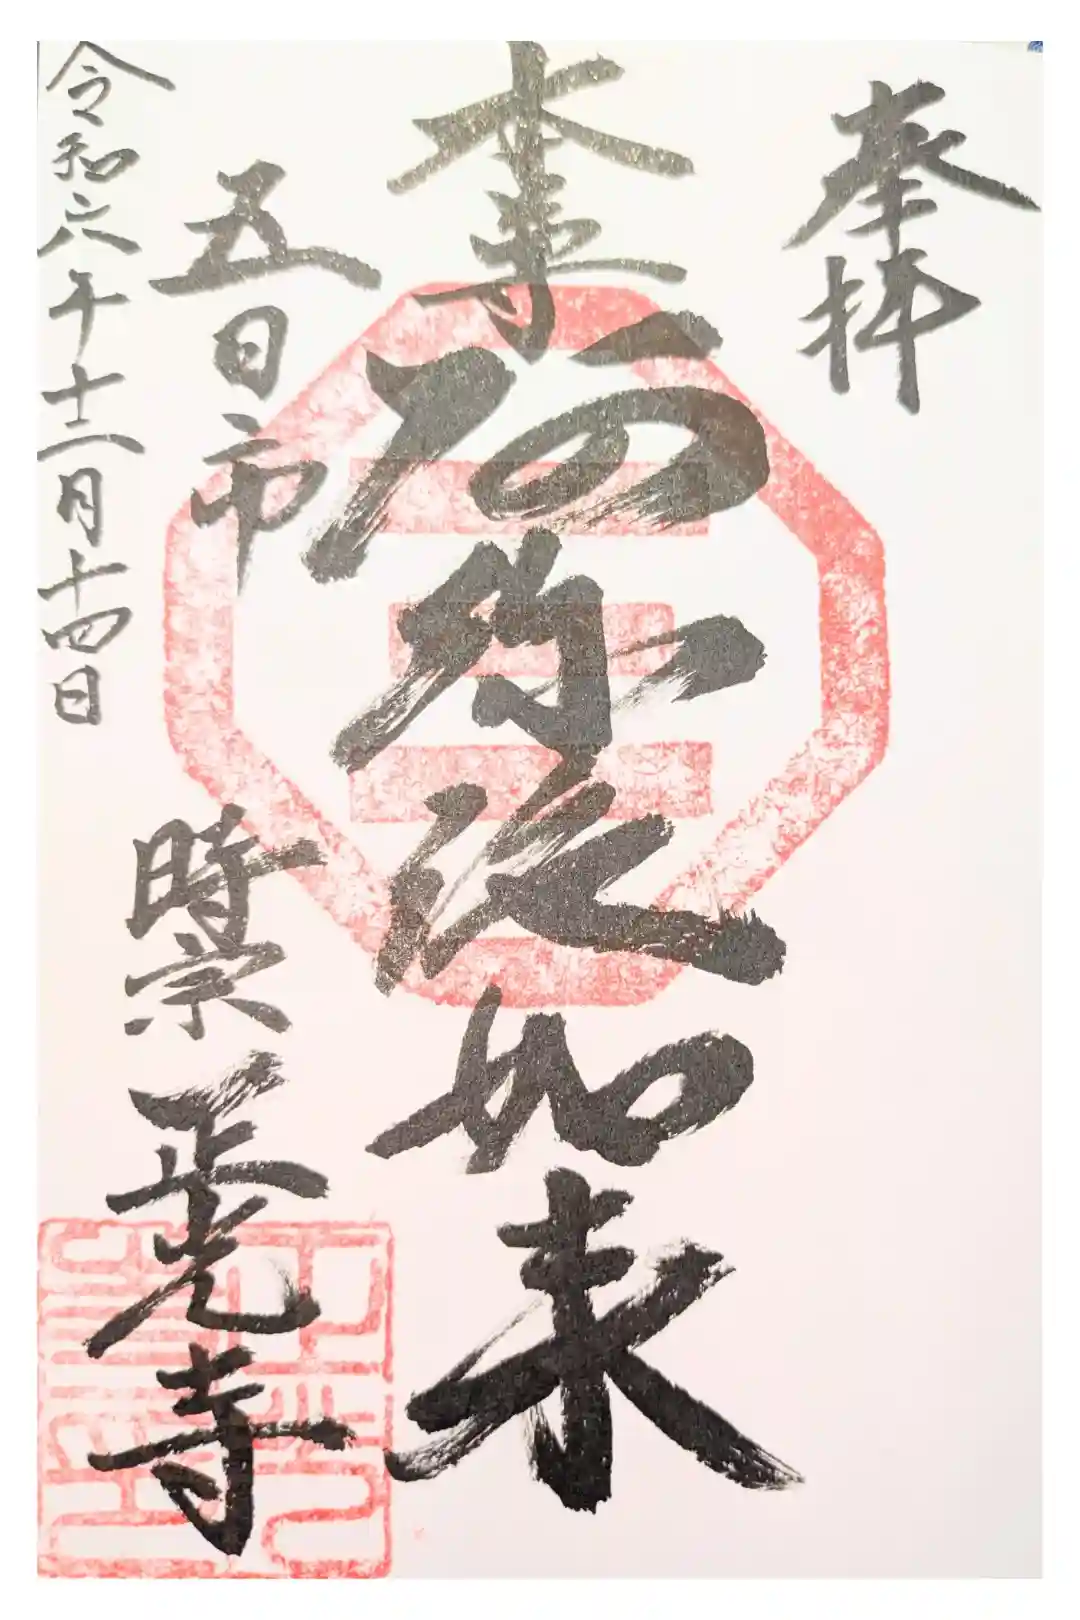 奉拝
本尊阿弥陀如来
五日市
時宗 正光寺
令和六年十二月十四日